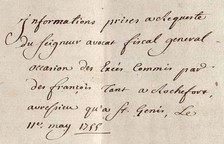 Informations prises a Requete
du Seigneur avocat fiscal general
occasion des Excés Commis par
des françois Tant a Rochefort
qu'a St. Genis, Le
11e. may 1755